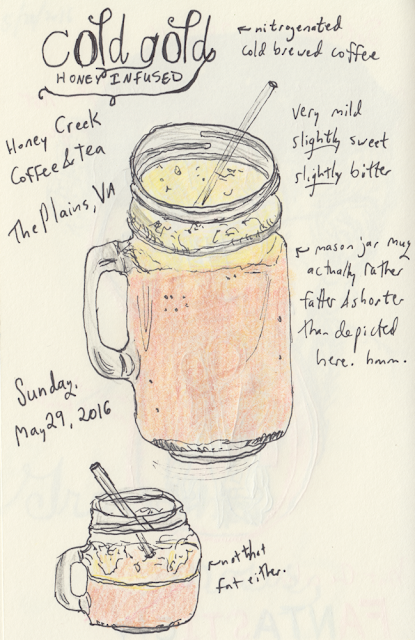 cold gold
HONEY INFUSED
← nitrogenated
cold brewed coffee
Honey Creek
Coffee & Tea
The Plains, VA
Very mild
slightly sweet
slightly bitter
← mason jar mug
actually rather
fatter & shorter
than depicted
here. hmm.
Sunday,
May 29, 2016
← not that
fat either.